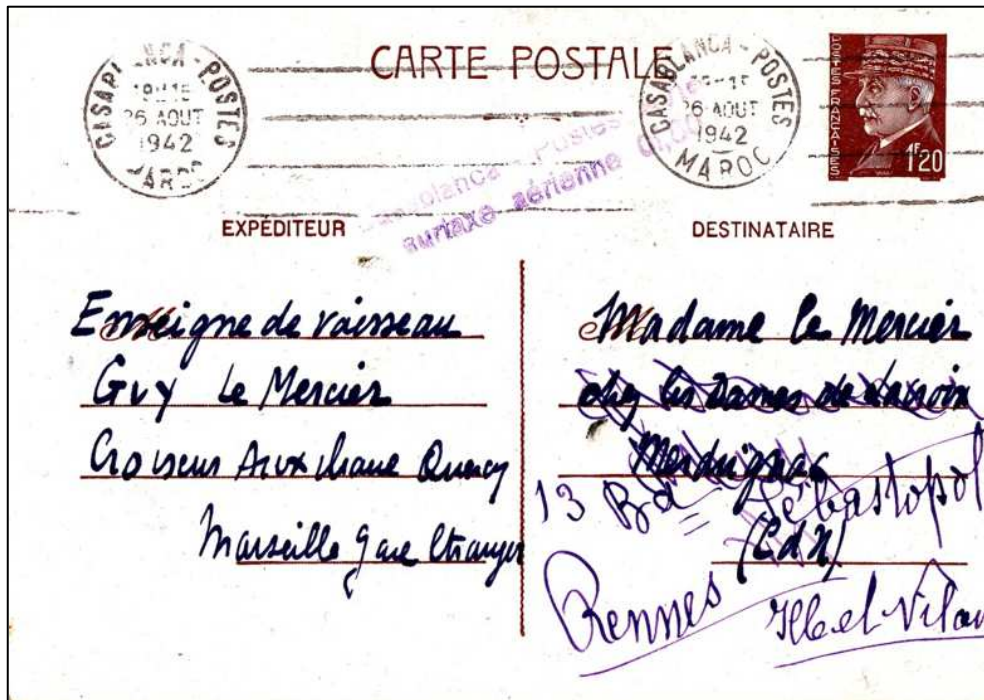 CARTE POSTALE
CASABLANCA - POSTES
19H15
26 AOUT
1942
MAROC
CASABLANCA - POSTES
19H15
26 AOUT
1942
MAROC
POSTES FRANÇAISES
1F20
Casablanca Postes
surtaxe aérienne
EXPÉDITEUR
DESTINATAIRE
Enseigne de vaisseau
Guy Le Mercier
Croiseur Auxiliaire Quercy
Marseille Gare Etranger
Madame le Mercier
chez les Dames de la croix
Merdrignac
13 Bd Sébastopol
(CdN)
Rennes Ille et Vilaine